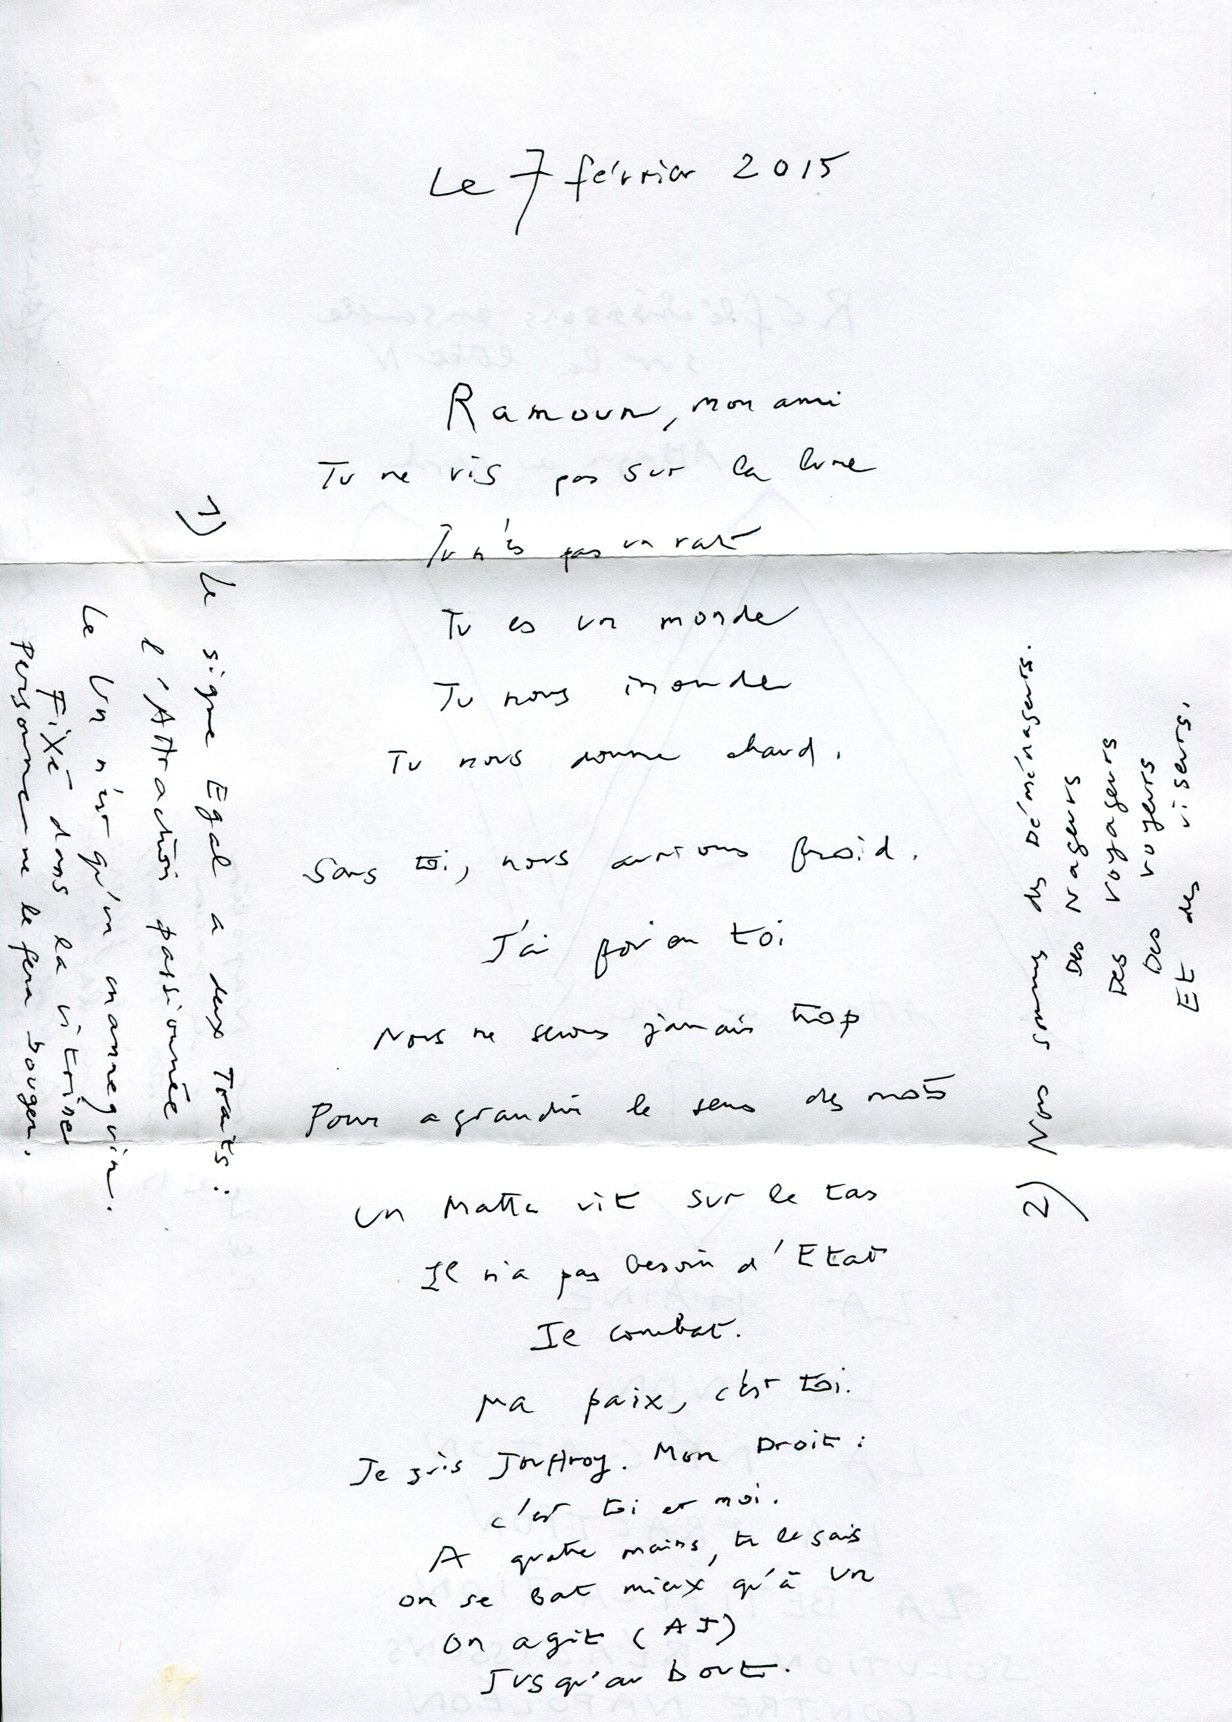 Le 7 février 2015
Ramoun, mon ami
Tu ne vis pas sur la lune
Tu n'es pas un rat
Tu es un monde
Tu nous inondes
Tu nous donne chaud.
Sans toi, nous aurions froid.
J'ai foi en toi
Nous ne serons jamais trop
Pour agrandir le sens des mots
Un Matta vit sur le tas
Il n'a pas besoin d'Etat
Je combat.
Ma paix, c'est toi.
Je suis Jouffroy. Mon Droit :
c'est toi et moi.
A quatre mains, tu le sais
on se bat mieux qu'à un
On agit (AJ)
Jusqu'au bout.
1) Le signe Egal a deux Traits :
l'Attraction passionnée
Le Un n'est qu'un mannequin.
Fixé dans la vitrine
Personne ne le fera bouger.
2) Nous sommes des Déménageurs.
Des Nageurs
Des voyageurs
Des voyeurs
Et des viseurs.